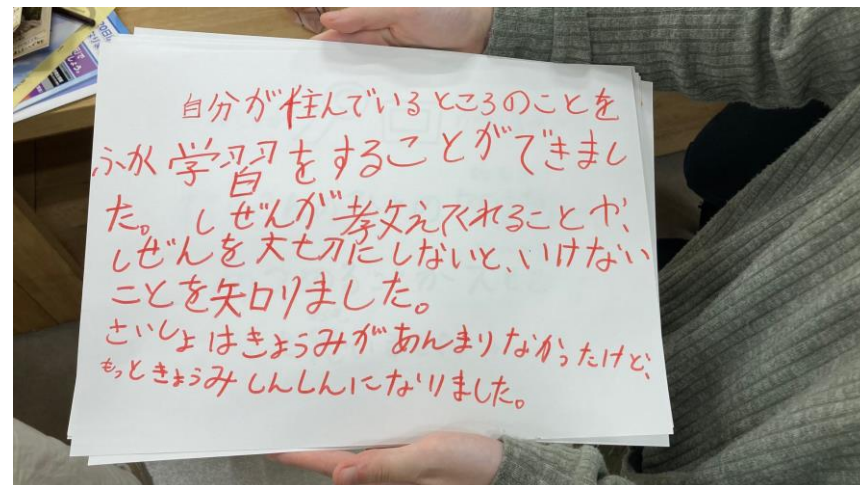 自分が住んでいるところのことを
ふかく学習をすることができまし
た。しぜんが教えてくれることや、
しぜんを大切にしないと、いけない
ことを知りました。
さいしょはきょうみがあんまりなかったけど、
もっときょうみしんしんになりました。